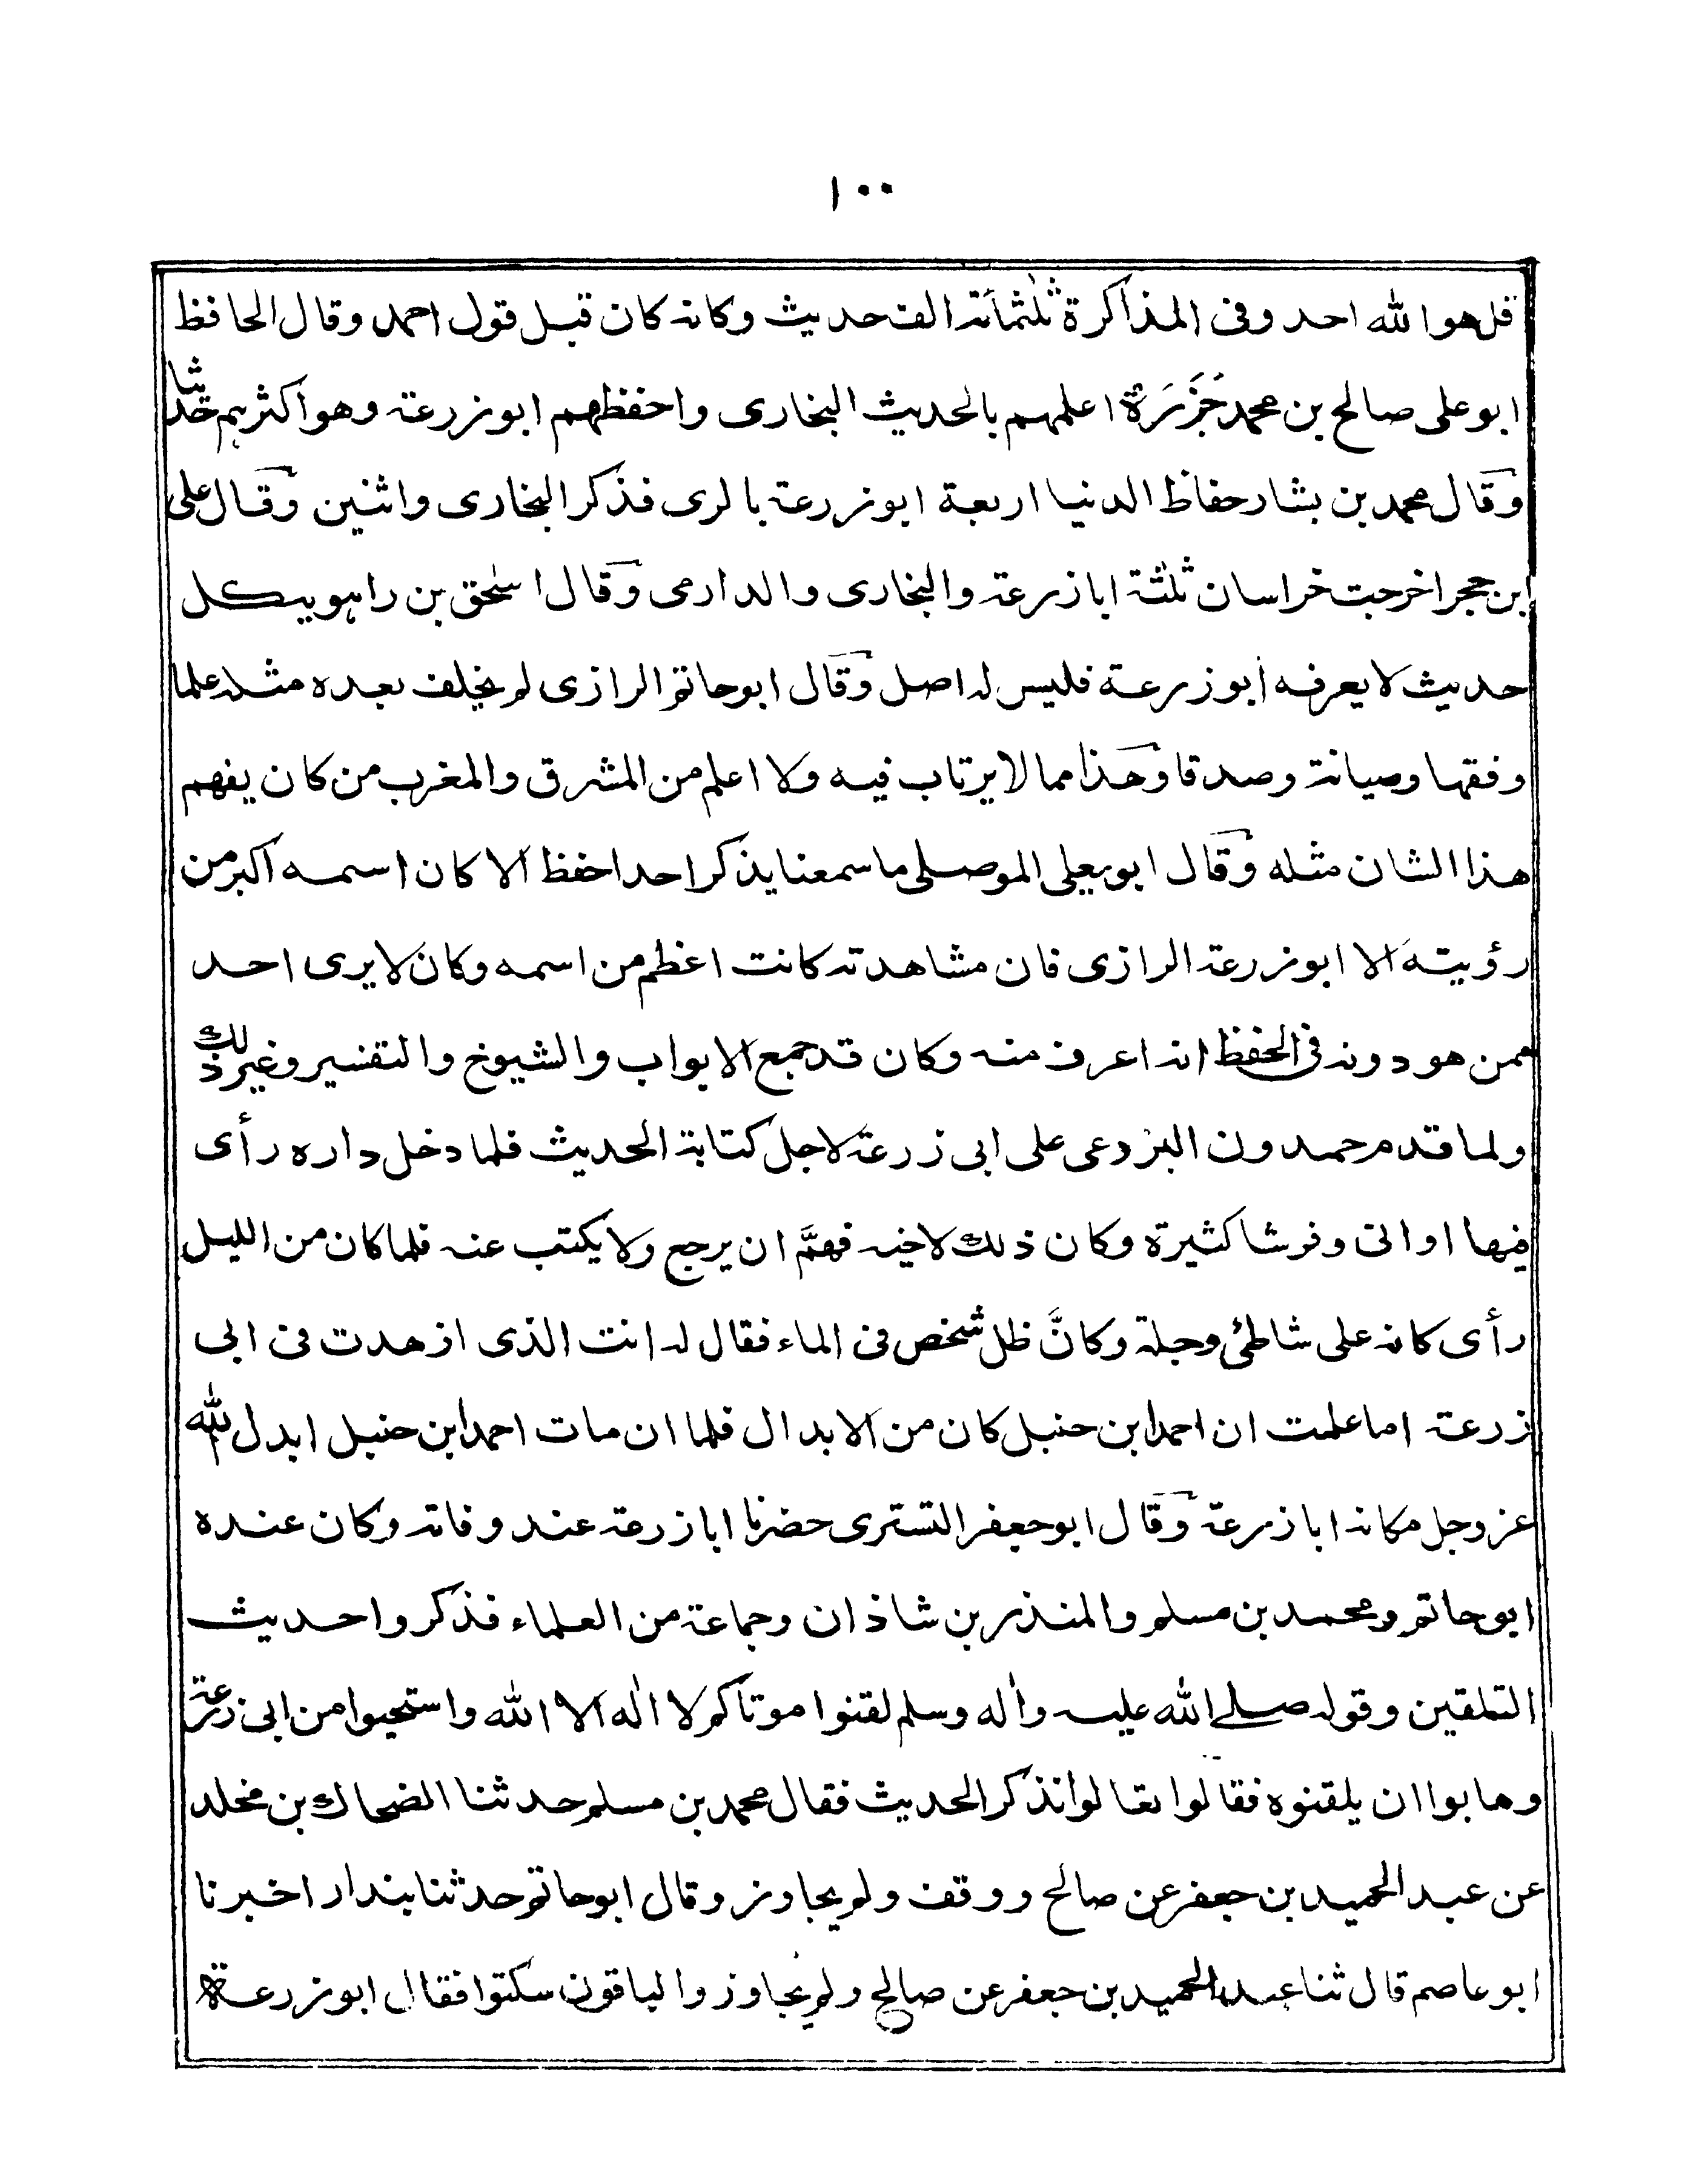 ١٠٠
قل هو الله احد وفى المذاكرة ثلثمأتہ الف حديث وكانہ كان قبل قول احمد وقال الحافظ
ابو على صالح بن محمد جَزَرَة اعلمهم بالحديث البخارى واحفظهم ابو زرعۃ وهو اكثرهم حديثا
وقال محمد بن بشار حفاظ الدنيا اربعة ابو زرعۃ بالرى فذكر البخارى واثنين وقال على
ابن حجر اخرجت خراسان ثلثۃ ابا زرعۃ والبخارى والدارمى وقال اسٰحق بن راهويہ كل
حديث لا يعرفه ابو زرعة فليس لہ اصل وقال ابو حاتم الرازى لم يخلف بعده مثلہ علما
وفقها وصيانۃ وصدقا وهذا مما لا يرتاب فيه ولا اعلم من المشرق والمغرب من كان يفهم
هذا الشان مثله وقال ابو يعلى الموصلى ما سمعنا يذكر احد احفظ الا كان اسمه اكبر من
رؤيتہ الا ابو زرعۃ الرازى فان مشاهدتہ كانت اعظم من اسمه وكان لا يرى احد
ممن هو دونہ فى الحفظ انہ اعرف منہ وكان قد جمع الابواب والشيوخ والتفسير وغير ذلك
ولما قدم حمدون البزدعى على ابى زرعۃ لاجل كتابۃ الحديث فلما دخل داره رأى
فيها اوانى وفرشا كثيرة وكان ذلك لاخيہ فهمَّ ان يرجع ولا يكتب عنہ فلما كان من الليل
رأى كانہ على شاطئ وجلۃ وكانَّ ظل شخص فى الماء فقال لہ انت الذى ازهدت فى ابى
زرعۃ اما علمت ان احمد ابن حنبل كان من الابدال فلما ان مات احمد ابن حنبل ابدل الله
عز وجل مكانہ ابا زرعۃ وقال ابو جعفر التسترى حضرنا ابا زرعۃ عند وفاتہ وكان عنده
ابو حاتم ومحمد بن مسلم والمنذر بن شاذان وجماعۃ من العلماء فذكروا حديث
التلقين وقولہ صلى الله عليه واٰله وسلم لقنوا موتاكم لا الٰه الا الله واستحيوا من ابى زرعۃ
وهابوا ان يلقنوه فقالوا تعالوا نذكر الحديث فقال محمد بن مسلم حدثنا الضحاك بن مخلد
عن عبد الحميد بن جعفر عن صالح ووقف ولم يجاوز وقال ابو حاتم حدثنا بندار اخبرنا
ابو عاصم قال ثنا عبد الحميد بن جعفر عن صالح ولم يجاوز والباقون سكتوا فقال ابو زرعة